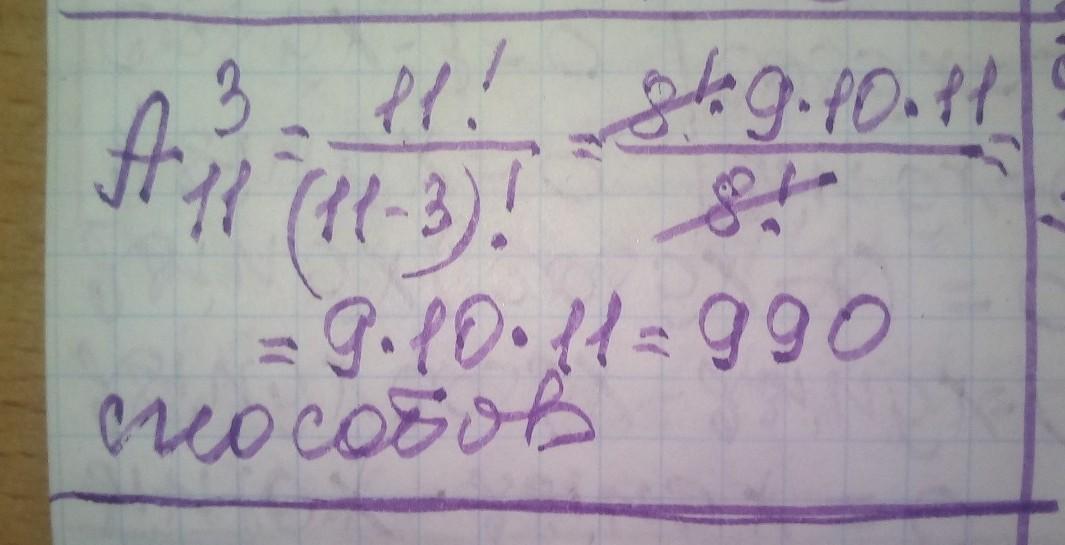 A₁₁³ = 11! / (11-3)! = 8!·9·10·11 / 8! =
= 9·10·11 = 990
способов